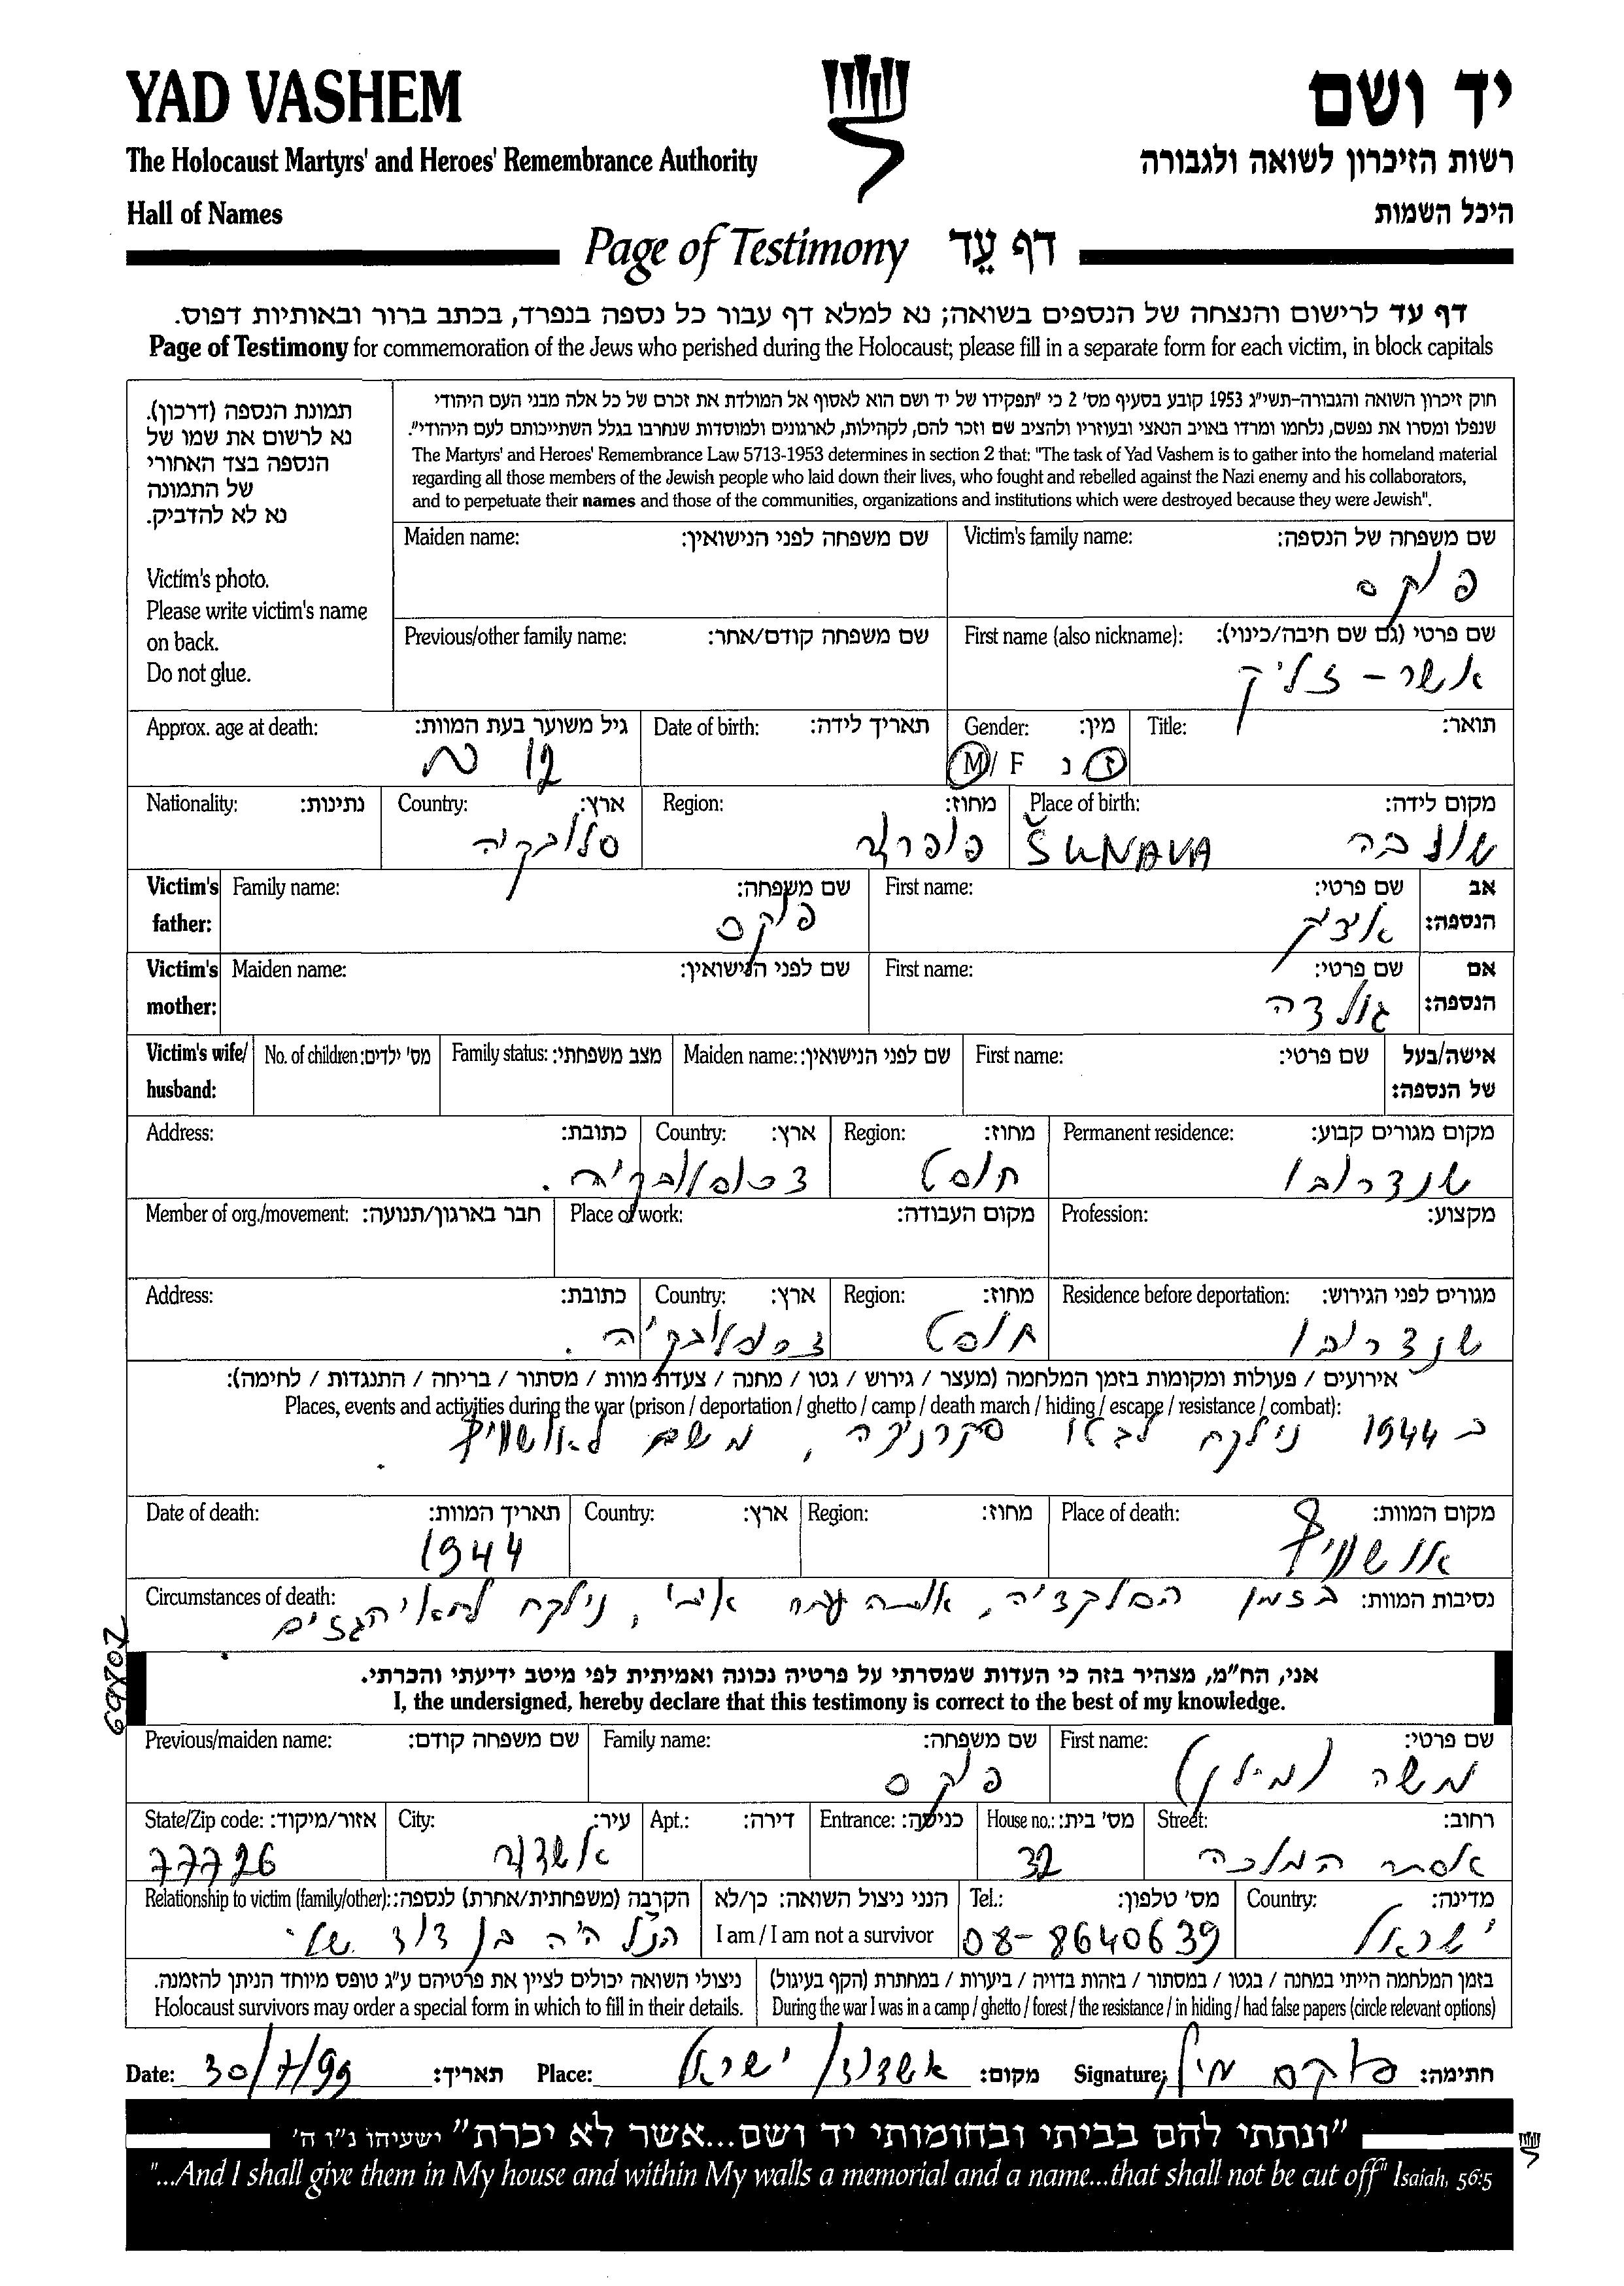 YAD VASHEM
יד ושם
The Holocaust Martyrs' and Heroes' Remembrance Authority
רשות הזיכרון לשואה ולגבורה
Hall of Names
היכל השמות
Page of Testimony דף עֵד
דף עד לרישום והנצחה של הנספים בשואה; נא למלא דף עבור כל נספה בנפרד, בכתב ברור ובאותיות דפוס.
Page of Testimony for commemoration of the Jews who perished during the Holocaust; please fill in a separate form for each victim, in block capitals
תמונת הנספה (דרכון).
נא לרשום את שמו של
הנספה בצד האחורי
של התמונה
נא לא להדביק.
Victim's photo.
Please write victim's name
on back.
Do not glue.
חוק זיכרון השואה והגבורה-תשי"ג 1953 קובע בסעיף מס' 2 כי "תפקידו של יד ושם הוא לאסוף אל המולדת את זכרם של כל אלה מבני העם היהודי
שנפלו ומסרו את נפשם, נלחמו ומרדו באויב הנאצי ובעוזריו ולהציב שם וזכר להם, לקהילות, לארגונים ולמוסדות שנחרבו בגלל השתייכותם לעם היהודי".
The Martyrs' and Heroes' Remembrance Law 5713-1953 determines in section 2 that: "The task of Yad Vashem is to gather into the homeland material
regarding all those members of the Jewish people who laid down their lives, who fought and rebelled against the Nazi enemy and his collaborators,
and to perpetuate their names and those of the communities, organizations and institutions which were destroyed because they were Jewish".
Maiden name: שם משפחה לפני הנישואין: Victim's family name: שם משפחה של הנספה:
פוקס
Previous/other family name: שם משפחה קודם/אחר: First name (also nickname): שם פרטי (גם שם חיבה/כינוי):
אשר - זליק
Approx. age at death: גיל משוער בעת המוות: Date of birth: תאריך לידה: Gender: מין: Title: תואר:
12 M / F ז נ
Nationality: נתינות: Country: ארץ: Region: מחוז: Place of birth: מקום לידה:
סלובקיה פופרד ŠUNAVA שונבה
Victim's father: Family name: שם משפחה: First name: שם פרטי: אב הנספה:
פוקס איציק
Victim's mother: Maiden name: שם לפני הנישואין: First name: שם פרטי: אם הנספה:
גולדה
Victim's wife/ husband: No. of children: מס' ילדים: Family status: מצב משפחתי: Maiden name: שם לפני הנישואין: First name: שם פרטי: אישה/בעל של הנספה:
Address: כתובת: Country: ארץ: Region: מחוז: Permanent residence: מקום מגורים קבוע:
צכוסלובקיה. חוסט שנדרובו
Member of org./movement: חבר בארגון/תנועה: Place of work: מקום העבודה: Profession: מקצוע:
Address: כתובת: Country: ארץ: Region: מחוז: Residence before deportation: מגורים לפני הגירוש:
צכוסלובקיה. חוסט שנדרובו
אירועים / פעולות ומקומות בזמן המלחמה (מעצר / גירוש / גטו / מחנה / צעדת מוות / מסתור / בריחה / התנגדות / לחימה):
Places, events and activities during the war (prison / deportation / ghetto / camp / death march / hiding / escape / resistance / combat):
ב 1944 נילקח לגאטו סקרניצה, משם לאושוויץ.
Date of death: תאריך המוות: Country: ארץ: Region: מחוז: Place of death: מקום המוות:
1944 אושוויץ
Circumstances of death: נסיבות המוות: בזמן הסלקציה, אימו, נילקח לתאי הגזים
69702
אני, הח"מ, מצהיר בזה כי העדות שמסרתי על פרטיה נכונה ואמיתית לפי מיטב ידיעתי והכרתי.
I, the undersigned, hereby declare that this testimony is correct to the best of my knowledge.
Previous/maiden name: שם משפחה קודם: Family name: שם משפחה: First name: שם פרטי:
פוקס משה (מילן)
State/Zip code: אזור/מיקוד: City: עיר: Apt.: דירה: Entrance: כניסה: House no.: מס' בית: Street: רחוב:
77726 אשדוד 32 אסתר המלכה
Relationship to victim (family/other): הקרבה (משפחתית/אחרת) לנספה: הנני ניצול השואה: כן/לא Tel.: מס' טלפון: Country: מדינה:
הנ"ל היה בן דוד שלי I am / I am not a survivor 08-8640639 ישראל
ניצולי השואה יכולים לציין את פרטיהם ע"ג טופס מיוחד הניתן להזמנה. בזמן המלחמה הייתי במחנה / בגטו / במסתור / בזהות בדויה / ביערות / במחתרת (הקף בעיגול)
Holocaust survivors may order a special form in which to fill in their details. During the war I was in a camp / ghetto / forest / the resistance / in hiding / had false papers (circle relevant options)
Date: 30/7/99 תאריך: Place: אשדוד ישראל מקום: Signature: פוקס מילן חתימה:
"ונתתי להם בביתי ובחומותי יד ושם...אשר לא יכרת" ישעיהו נ"ו ה'
"...And I shall give them in My house and within My walls a memorial and a name...that shall not be cut off" Isaiah, 56:5